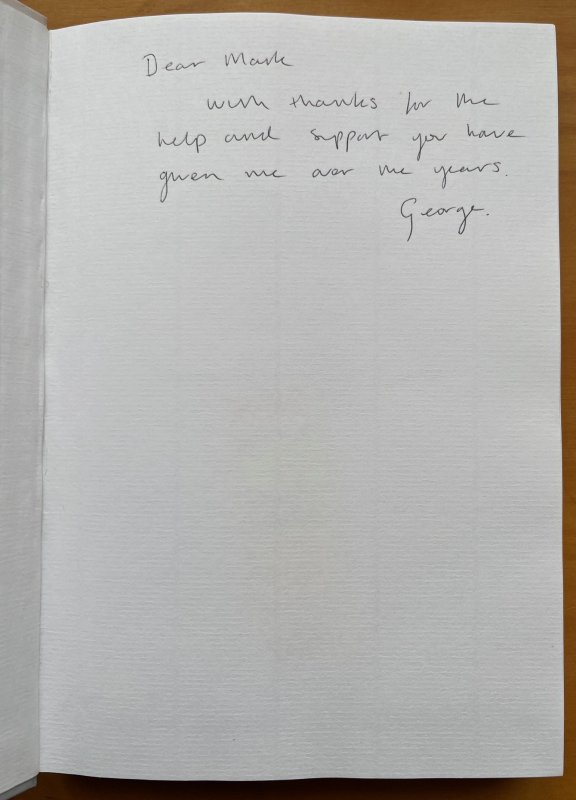 Dear Mark
with thanks for the
help and support you have
given me over the years.
George.